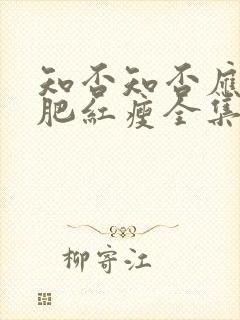 知否知否應
肥紅瘦全集
柳寄江